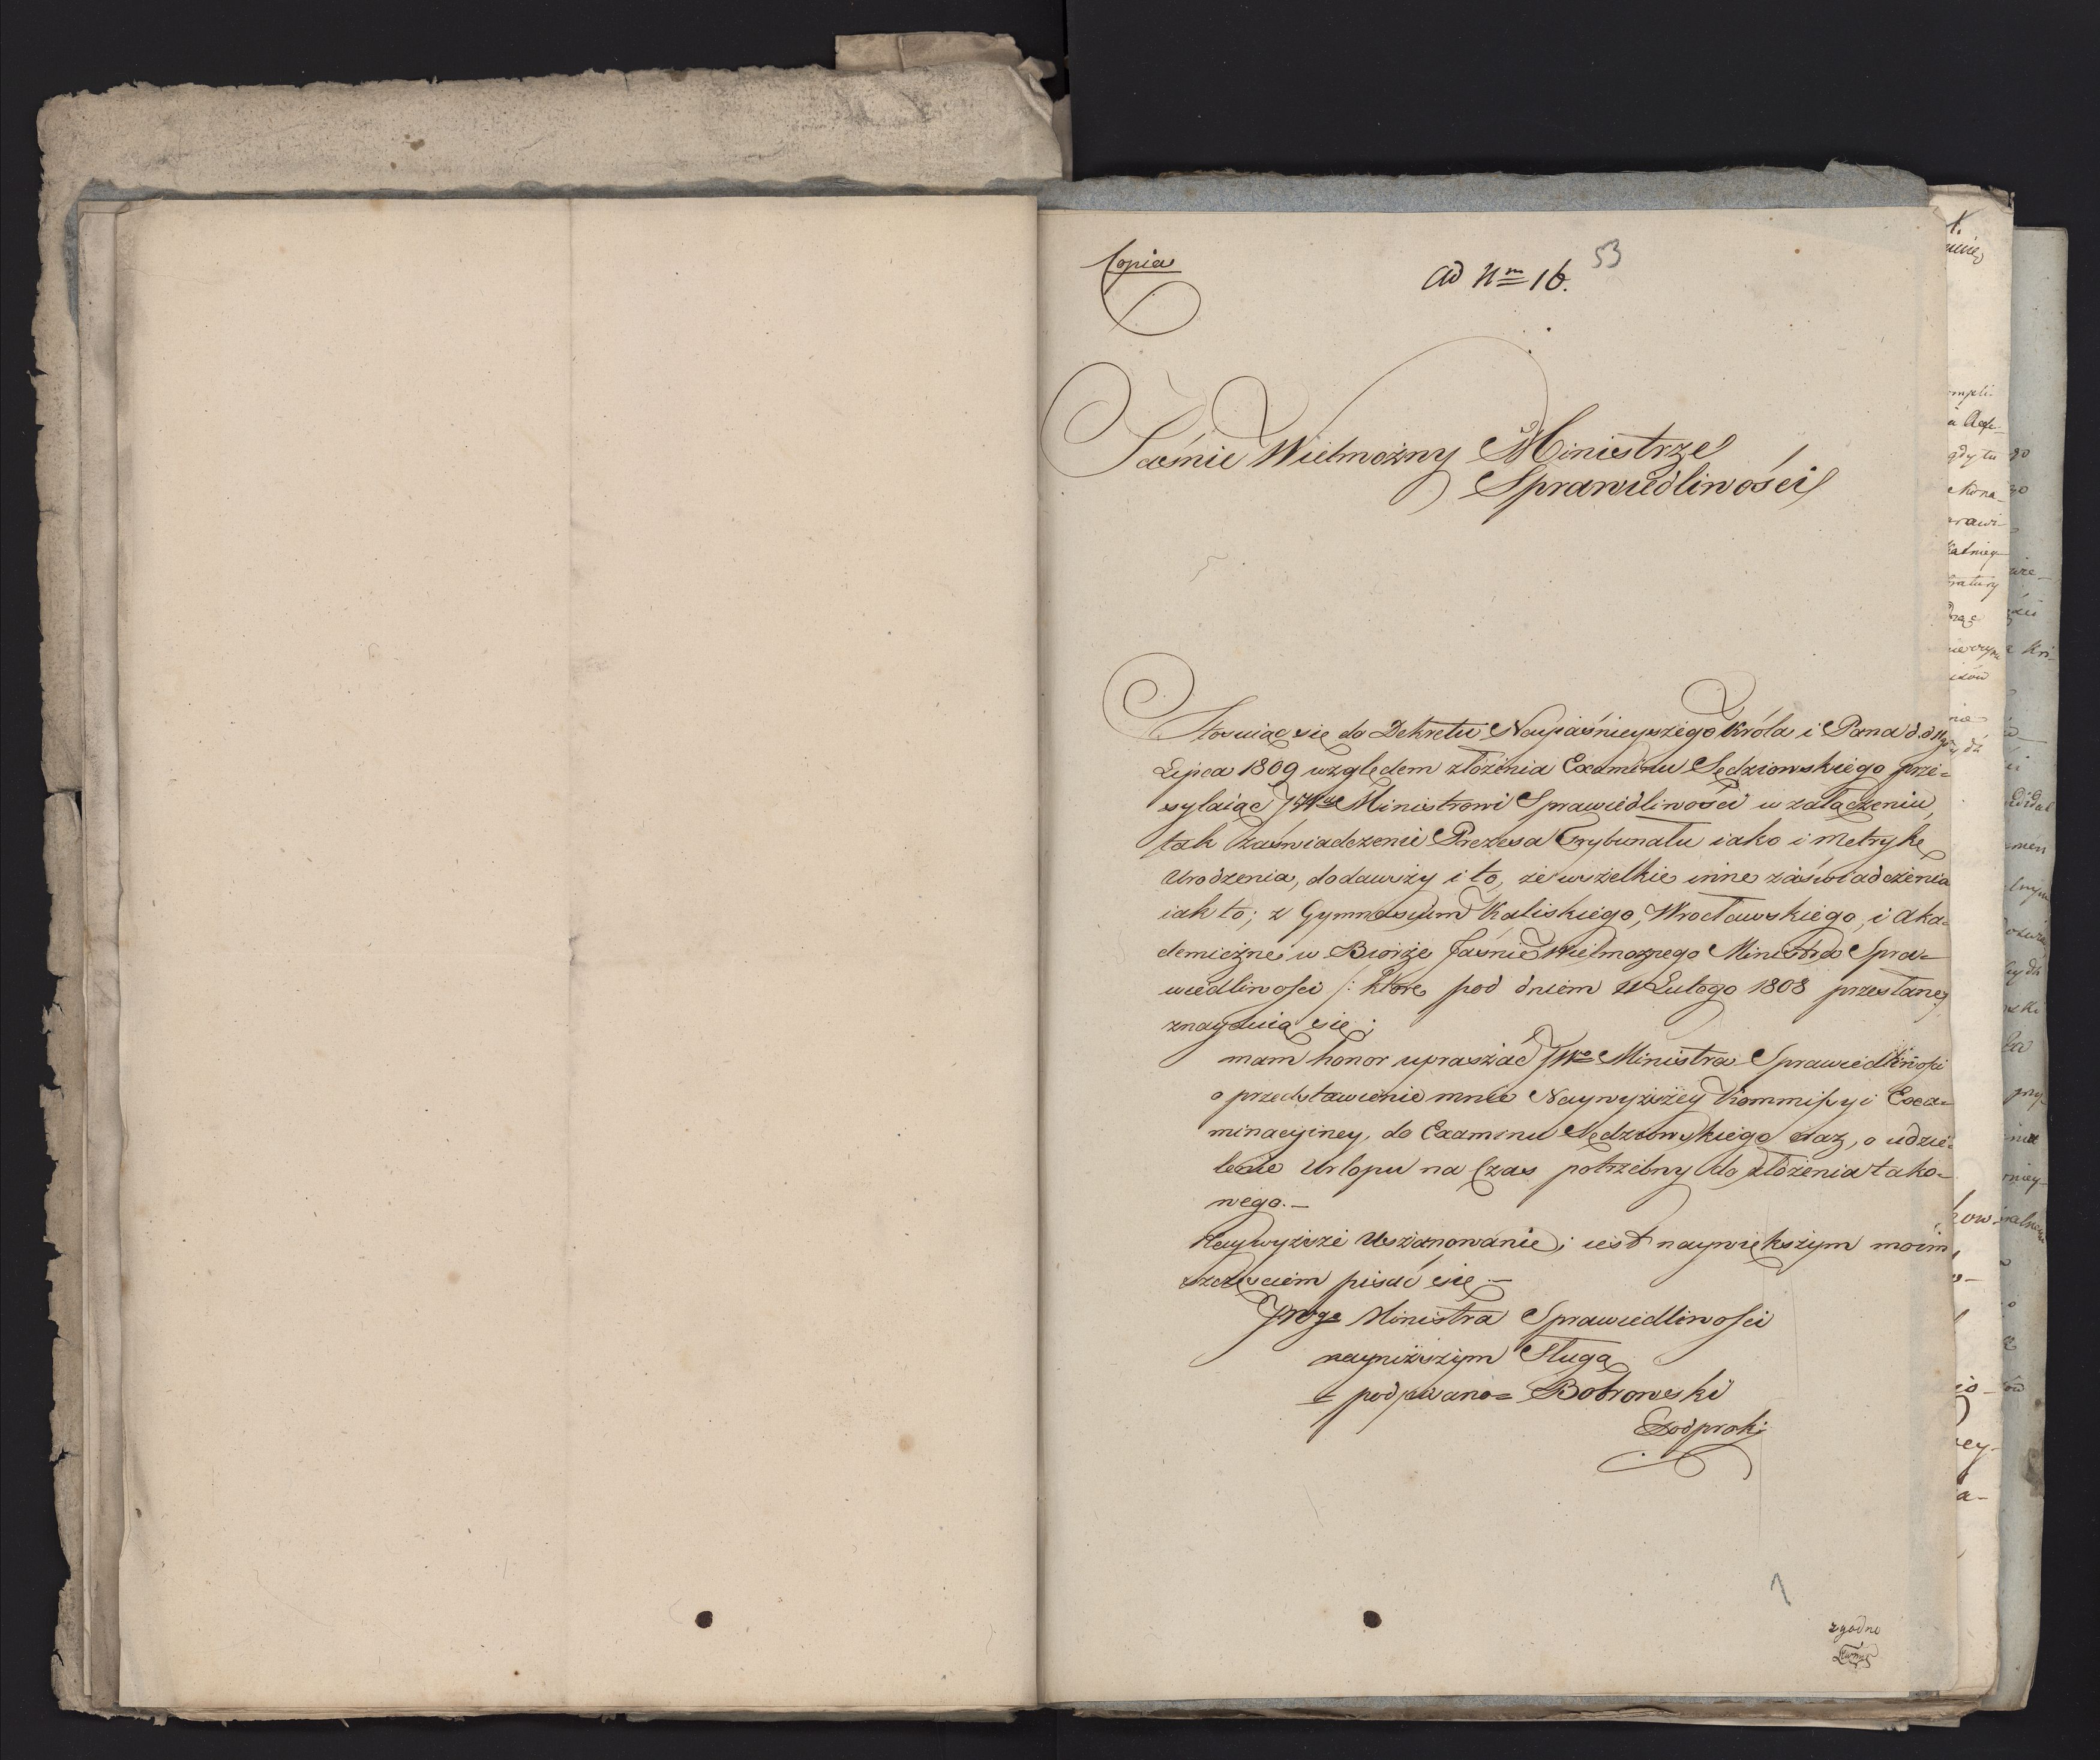 Copia
53
ad Nm 16.
Jaśnie Wielmożny Ministrze
Sprawiedliwości
Stosuiąc się do Dekretu Nayjaśnieyszego Króla i Pana d. d.
Lipca 1809 względem złożenia Examinu Sędziowskiego prze=
syłaiąc JWmu Ministrowi Sprawiedliwości w załączeniu,
tak zaświadczenie Prezesa Trybunału iako i Metrykę
Urodzenia, dodawszy i to, że wszelkie inne zaświadczenia
iak to; z Gymnasyum Kaliskiego, Wrocławskiego, i Aka=
demiczne w Biórze Jaśnie Wielmożnego Ministra Spra=
wiedliwości /: które pod dniem 11 Lutego 1808 przesłane
znayduią się;
mam honor upraszać JWo Ministra Sprawiedliwości
o przedstawienie mnie Naywyższey Kommissyi Exa=
minacyiney, do Examinu Sędziowskiego oraz, o udzie=
lenie Urlopu na Czas potrzebny do złożenia tako=
wego.—
Naywyższe Uszanowanie; iest naywiększym moim
szczęściem pisać się.—
JWgo Ministra Sprawiedliwości
nayniższym Sługą
podpisano= Bobrowski
Podprok:
zgodno